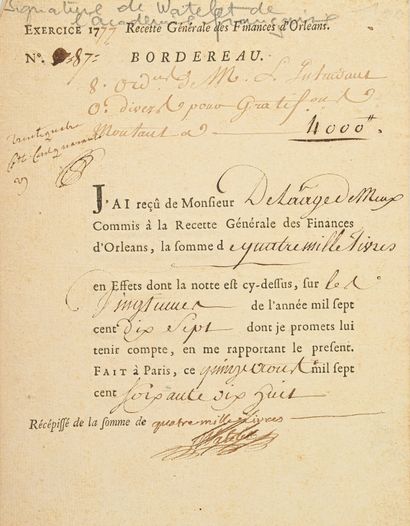 Signature de Watelet de
l'académie française
EXERCICE 1777 Recette Générale des Finances d'Orleans.
N°. 87. BORDEREAU.
8. Ord. de M. L'Intendant
divers pour Gratif
Montant a 4000⁠#.
J'AI reçû de Monsieur Delaage de Meux
Commis à la Recette Générale des Finances
d'Orleans, la somme de quatre mille livres
en Effets dont la notte est cy-dessus, sur les
de l'année mil sept
cent dix sept dont je promets lui
tenir compte, en me rapportant le present.
FAIT à Paris, ce quinze aoust mil sept
cent soixante dix huit
Récépissé de la somme de quatre mille livres
Watelet